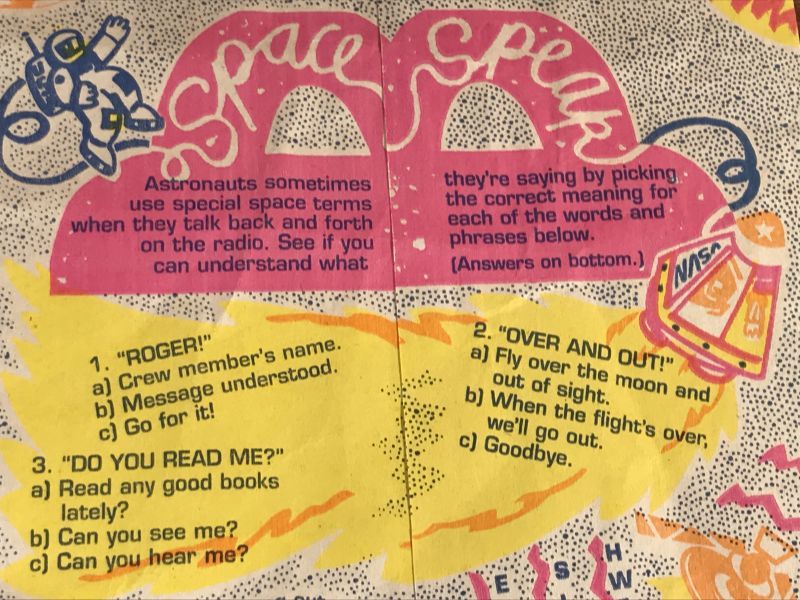 Space Speak
Astronauts sometimes
use special space terms
when they talk back and forth
on the radio. See if you
can understand what
they're saying by picking
the correct meaning for
each of the words and
phrases below.
(Answers on bottom.)
NASA
1. "ROGER!"
a) Crew member's name.
b) Message understood.
c) Go for it!
2. "OVER AND OUT!"
a) Fly over the moon and
out of sight.
b) When the flight's over,
we'll go out.
c) Goodbye.
3. "DO YOU READ ME?"
a) Read any good books
lately?
b) Can you see me?
c) Can you hear me?
E S H
W